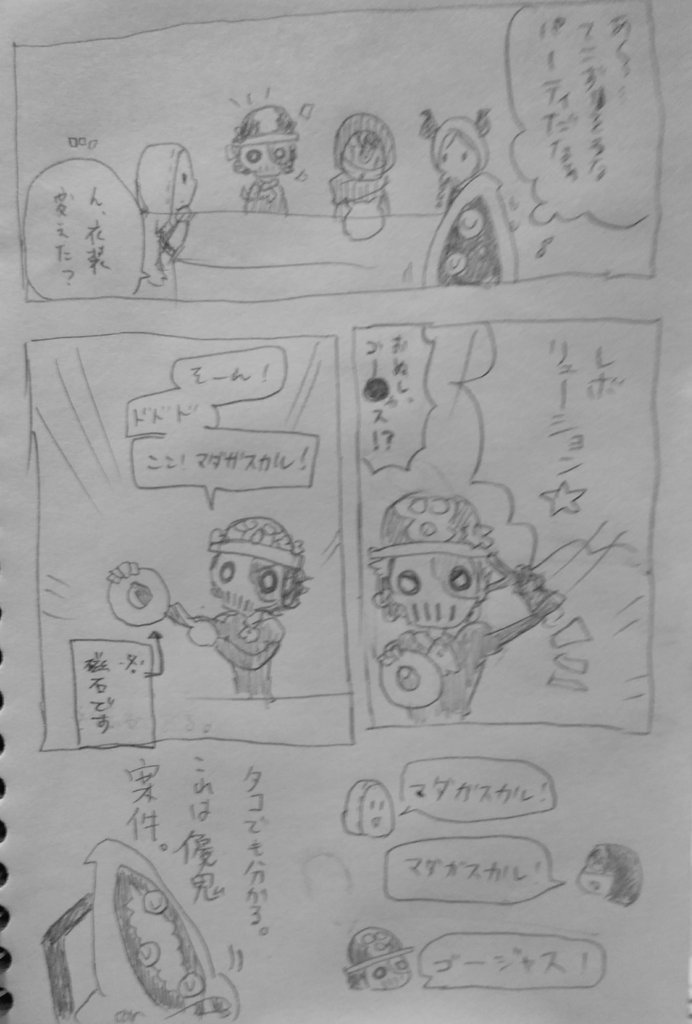 パーティだなぁ
ん、衣装
変えたた？
レボ
リューション☆
おぬし、
ゴー●ス!?
そーれ！
ドドド
ここ！マダガスカル！
磁石です
マダガスカル！
マダガスカル！
ゴージャス！
タコでも分かる。
これは
案件。